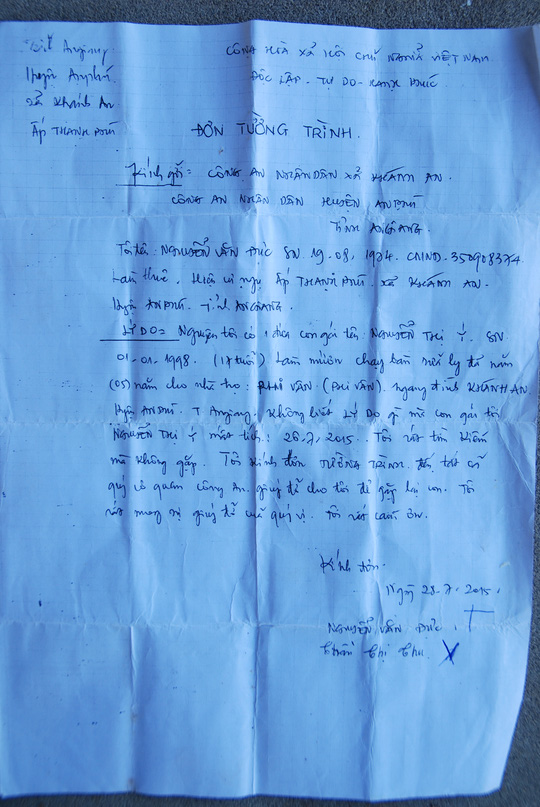 Tỉnh Angiang
Huyện Anphú.
Xã Khánh An
Ấp THẠNH PHÚ
CỘNG HÒA XÃ HỘI CHỦ NGHĨA VIỆT NAM
ĐỘC LẬP. TỰ DO - HẠNH PHÚC
ĐƠN TƯỜNG TRÌNH.
Kính gởi: CÔNG AN NHÂN DÂN XÃ KHÁNH AN.
CÔNG AN NHÂN DÂN HUYỆN ANPHÚ
TỈNH ANGIANG.
Tôi tên: NGUYỄN VĂN ĐỨC SN. 19.08, 1974. CMND. 350908374
Làm thuê. Hiện cư ngụ ẤP THẠNH PHÚ. XÃ KHÁNH AN.
Huyện ANPHÚ. TỈNH ANGIANG.
LÝ DO: Nguyên tôi có 1 đứa con gái tên NGUYỄN THỊ Ý. SN
01-01-1998. (17 tuổi) Làm mướn chạy bàn
(05) năm cho nhà họ: PHI VÂN. (PHI VÂN). ngang đình KHÁNH AN
Huyện ANPHÚ. T Angiang. Không biết LÝ DO gì mà con gái tôi
NGUYỄN THỊ Ý mất tích: 26.7, 2015. Tôi rất tìm kiếm
mà không gặp. Tôi kính đơn TƯỜNG TRÌNH. tất cả
quý cơ quan công An. giúp đỡ cho tôi để gặp lại con. Tôi
rất mong sự giúp đỡ của quý vị. Tôi rất cảm ơn.
Kính đơn.
Ngày 28.7, 2015.
NGUYỄN VĂN ĐỨC.
Trần Thị Thu. X